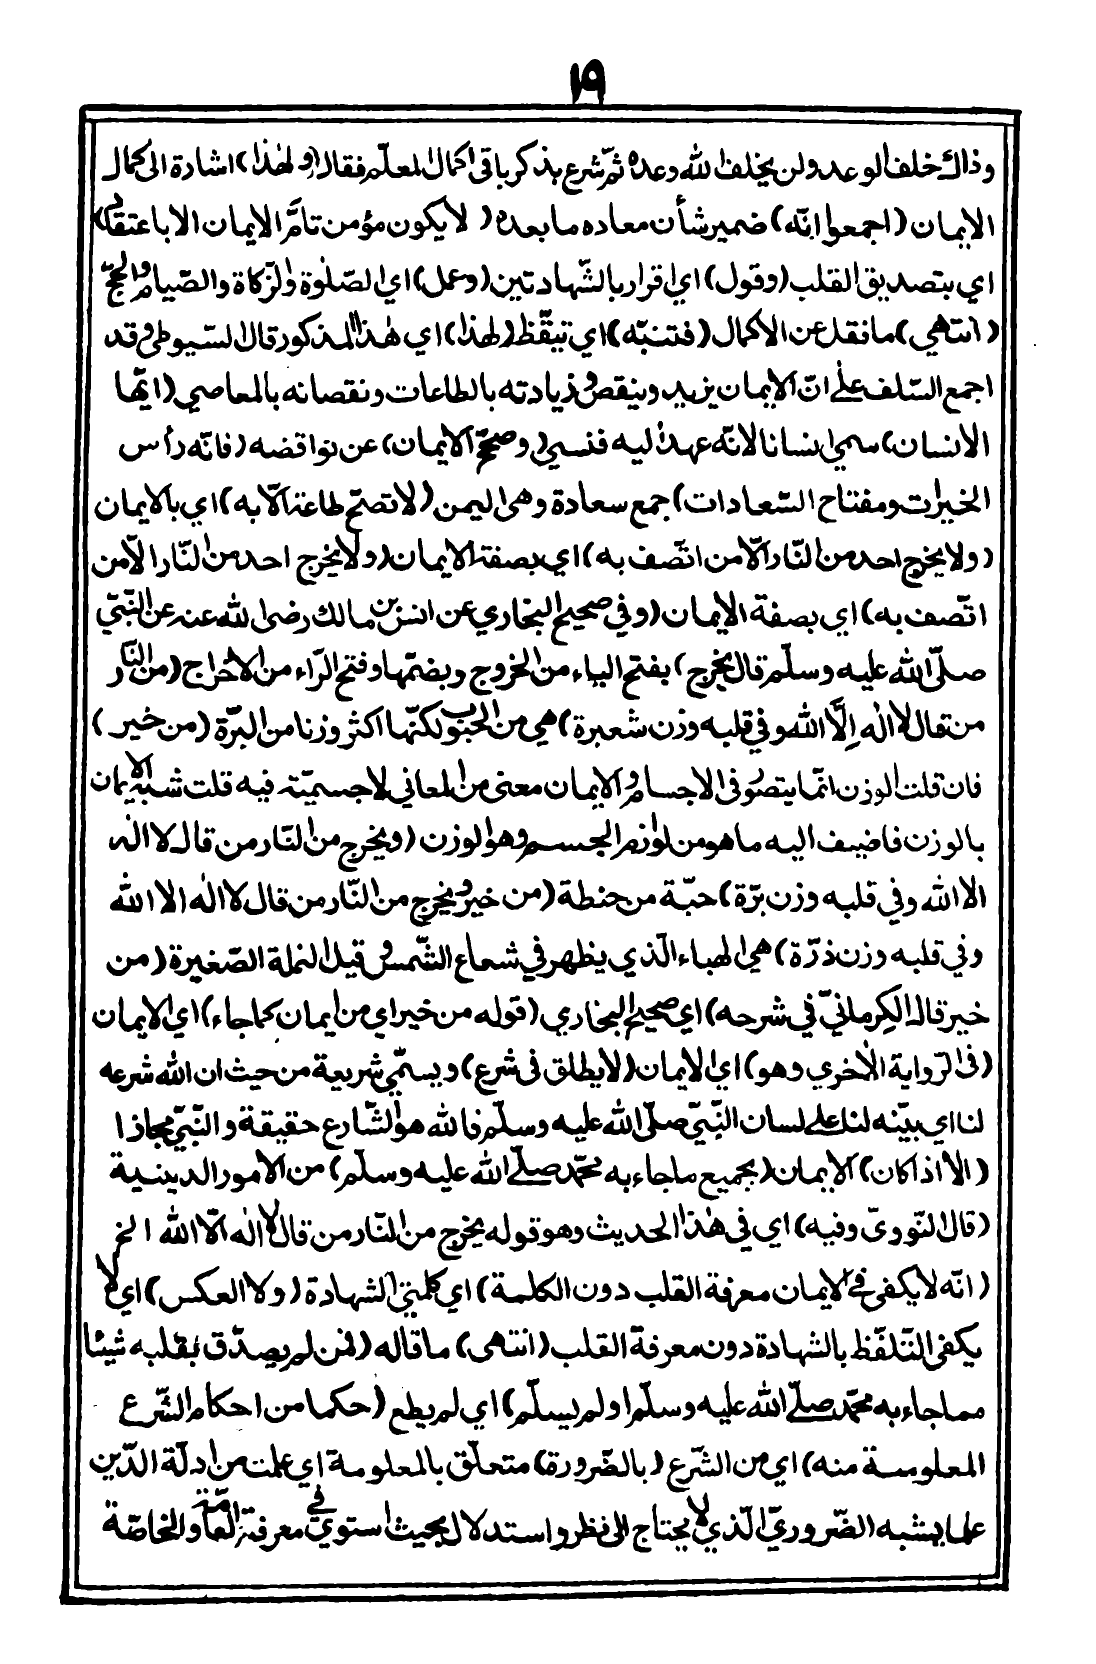 ١٩
وذاك خلف الوعد ولن يخلف الله وعده ثمّ شرع بذكر باقي اكمال المعلّم فقال (ولهذا) اشارة الى كمال
الايمان (اجمعوا انّه) ضمير شأن معاده ما بعده ( لا يكون مؤمن تامّ الايمان الا باعتقاد)
اي بتصديق القلب (وقول) اي اقرار بالشّهادتين (وعمل) اي الصّلوٰة والزّكاة والصّيام والحجّ
(انتهى) ما نقل عن الاكمال (فتنبّه) اي تيقّظ (لهذا) اي هٰذا المذكور قال السّيوطي وقد
اجمع السّلف على انّ الايمان يزيد وينقص وزيادته بالطاعات ونقصانه بالمعاصي (ايّها
الانسان) سمي انسانا لانّه عهد اليه فنسي (وصحّح الايمان) عن نواقضه (فانّه رأس
الخيرات ومفتاح السّعادات) جمع سعادة وهي اليمن (لا تصحّ طاعة الّا به) اي بالايمان
(ولا يخرج احد من النّار الّا من اتّصف به) اي بصفة الايمان (ولا يخرج احد من النّار الّا من
اتّصف به) اي بصفة الايمان (وفي صحيح البخاري عن انس بن مالك رضى الله عنه عن النّبيّ
صلّى الله عليه وسلّم قال يخرج) بفتح الياء من الخروج وبضمّها وفتح الرّاء من الاخراج (من النّار
من قال لا الٰه اِلَّا الله وفي قلبه وزن شعيرة) هي من الحبوب لكنّها اكثر وزنا من البرّة (من خير)
فان قلت الوزن انّما يتصوّر في الاجسام والايمان معنى من المعاني لا جسميّة فيه قلت شبه الايمان
بالوزن فاضيف اليه ما هو من لوازم الجسم وهو الوزن (ويخرج من النّار من قال لا الٰه
الا الله وفي قلبه وزن برّة) حبّة من حنطة (من خير ويخرج من النّار من قال لا الٰه الا الله
وفي قلبه وزن ذرّة) هي الهباء الّذي يظهر في شعاع الشّمس وقيل النملة الصّغيرة (من
خير قال الكِرمانيّ في شرحه) اي صحيح البخاري (قوله من خير اي من ايمان كما جاء) اي الايمان
(في الرّواية الأخرى وهو) اي الايمان (لا يطلق في شرع) ويسمّي شريعة من حيث ان الله شرعه
لنا اي بيّنه لنا على لسان النّبيّ صلّى الله عليه وسلّم فالله هو الشّارع حقيقة والنّبيّ مجازا
(الّا اذا كان) الايمان (بجميع ما جاء به محمّد صلّى الله عليه وسلّم) من الامور الدينية
(قال النّوويّ وفيه) اي في هٰذا الحديث وهو قوله يخرج من النّار من قال لا اله الّا الله الخ
(انّه لا يكفي في الايمان معرفة القلب دون الكلمة) اي كلمتي الشّهادة (ولا العكس) اي لا
يكفي التّلفّظ بالشّهادة دون معرفة القلب (انتهى) ما قاله (فمن لم يصدّق بقلبه شيئا
مما جاء به محمّد صلّى الله عليه وسلّم او لم يسلّم) اي لم يطع (حكما من احكام الشّرع
المعلومة منه) اي من الشّرع (بالضّرورة) متعلّق بالمعلومة اي علمت من ادلّة الدّين
علما يشبه الضّروريّ الّذي لا يحتاج الى نظر واستدلال بحيث استوي في معرفة العامّة والخاصّة